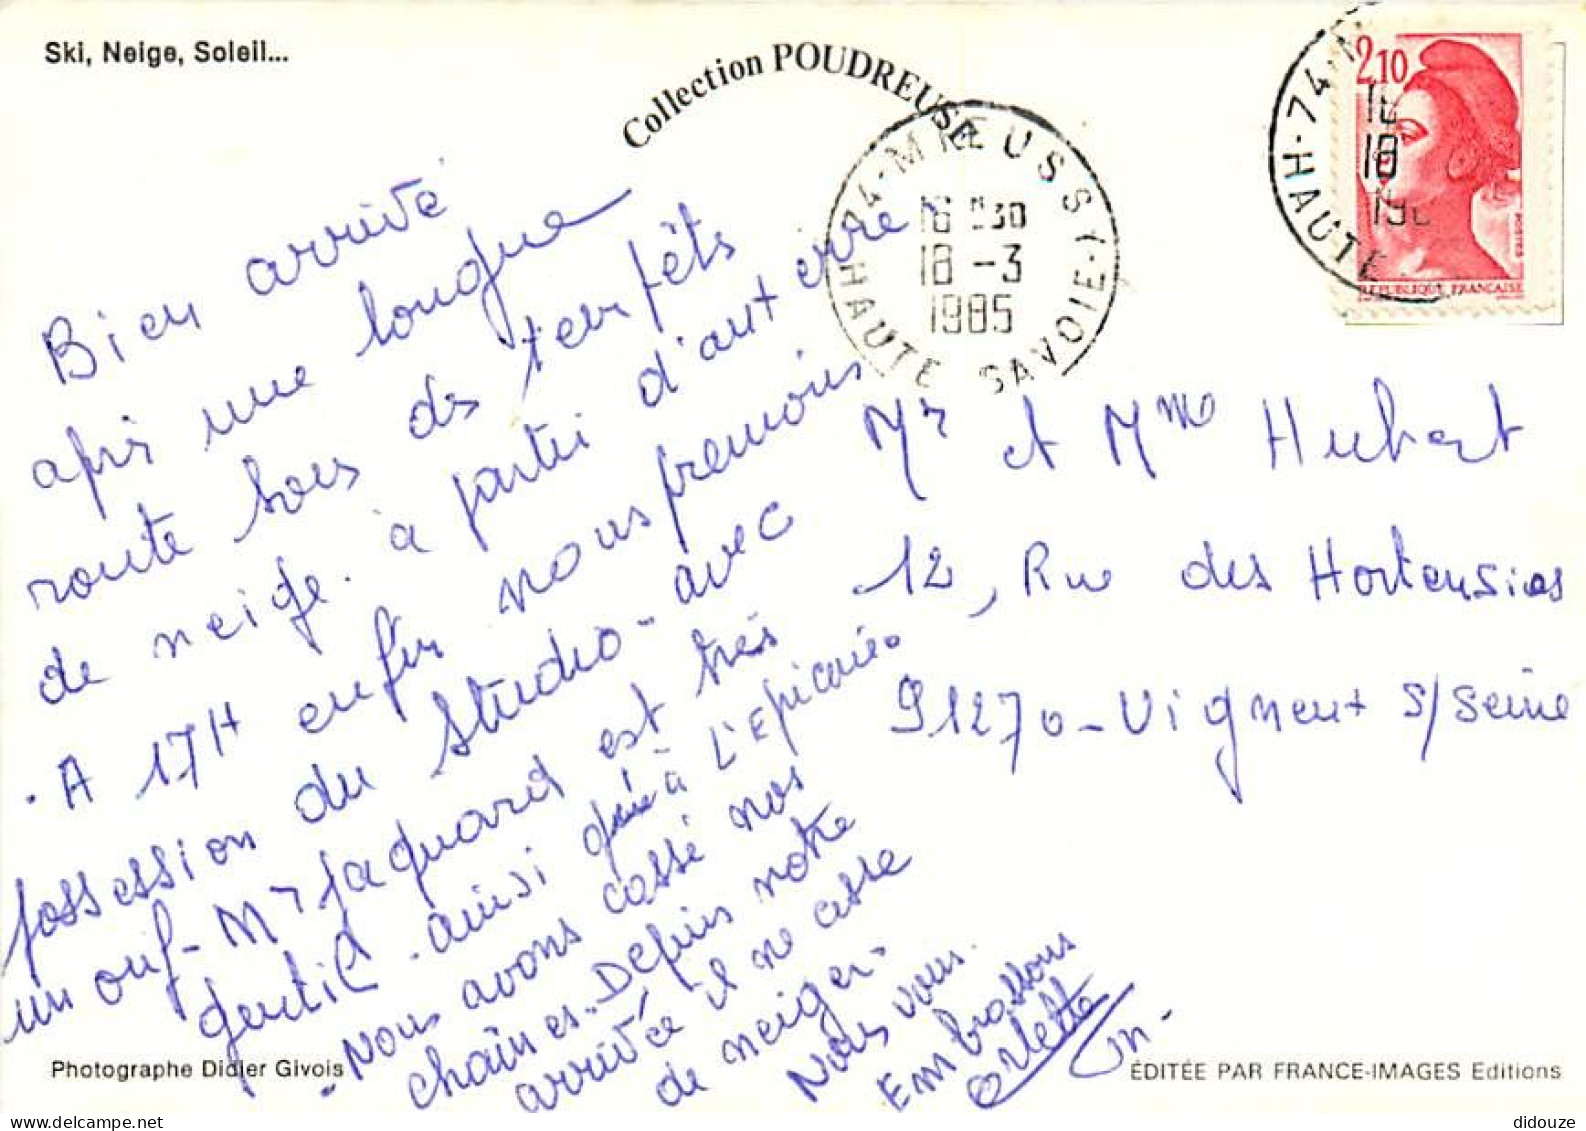 Ski, Neige, Soleil...
Collection POUDREUSE
74-MIEUSSY-
16H30
18-3
1985
HAUTE SAVOIE
74-M
18
198
HAUTE
2,10
POSTES
REPUBLIQUE FRANÇAISE
Bien arrivé
après une longue
route sous des tempêts
de neige. à partir d'auxerre
. A 17H enfin nous prenions
possession du Studio - avec
un ouf - Mr Jaquard est très
gentil. ainsi qu'à L'Epicerie.
- Nous avons cassé nos
chaînes. Depuis notre
arrivée il ne cesse
de neiger.
Nous vous.
Embrassons
Arlette
Mr et Mme Hubert
12, Rue des Hortensias
91270 - Vigneux s/seine
Photographe Didier Givois
ÉDITÉE PAR FRANCE-IMAGES Editions
didouze